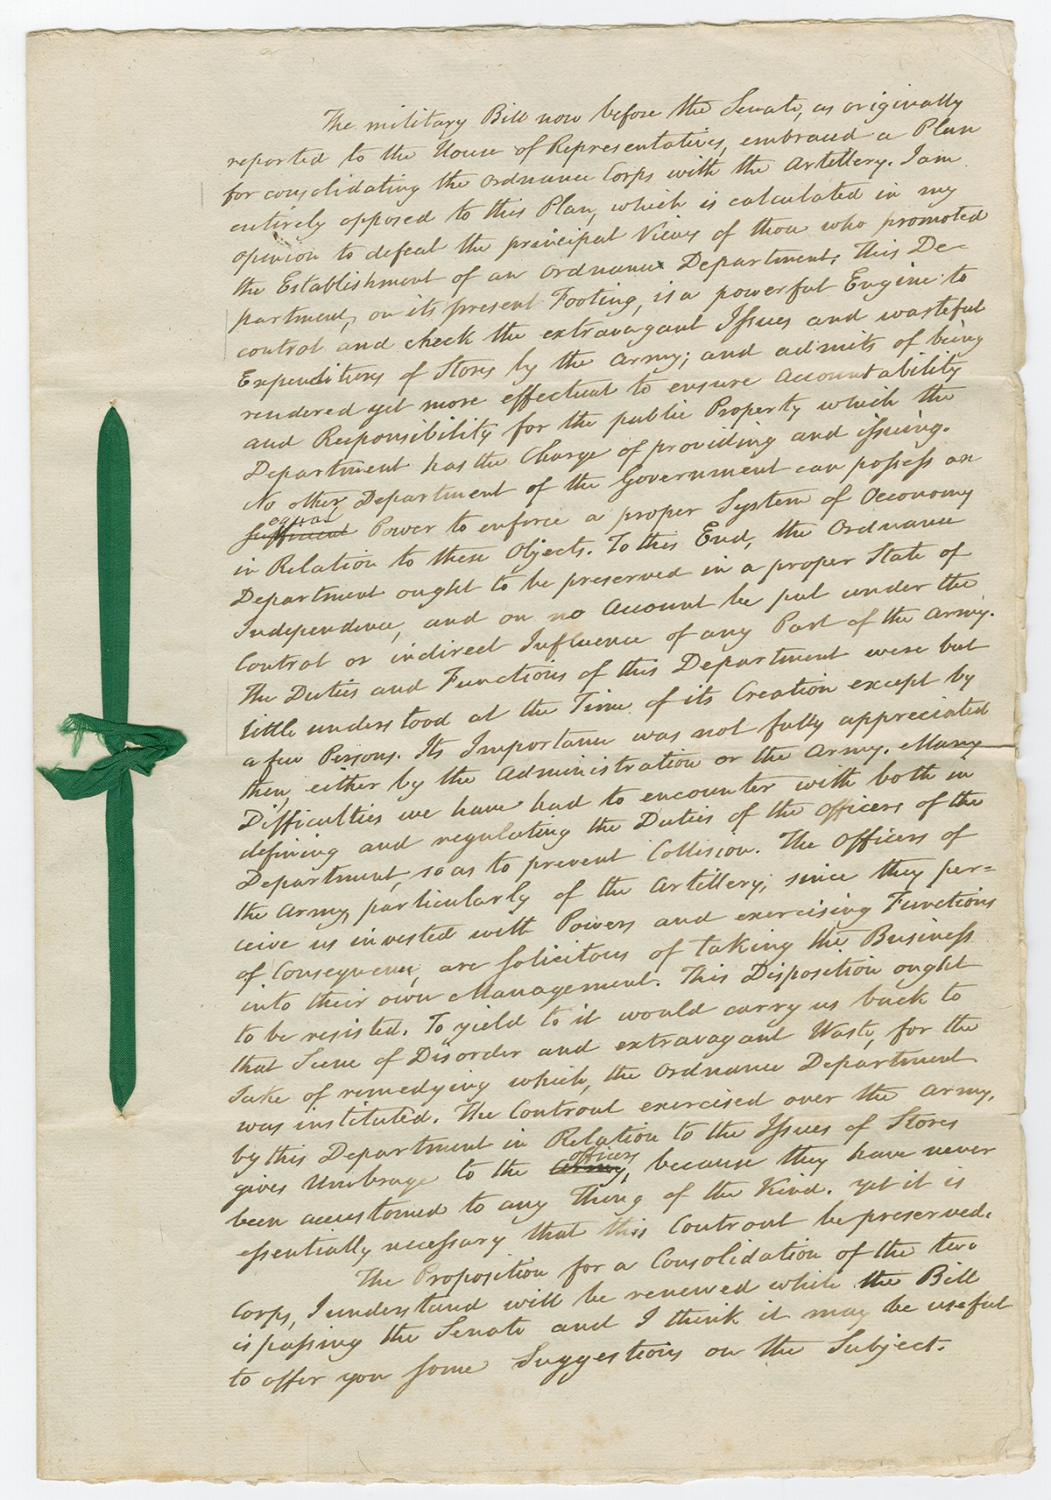 The military Bill now before the Senate, as originally
reported to the House of Representatives, embraced a Plan
for consolidating the Ordnance Corps with the Artillery. I am
entirely opposed to this Plan, which is calculated in my
opinion to defeat the principal Views of those who promoted
the Establishment of an Ordnance Department. This De-
partment, on its present Footing, is a powerful Engine to
control and check the extravagant Issues and wasteful
Expenditures of Stores by the Army; and admits of being
rendered yet more effectual to ensure Accountability
and Responsibility for the public Property which the
Department has the Charge of providing and issuing.
No other Department of the Government can possess an
equal
sufficient Power to enforce a proper System of Oeconomy
in Relation to these Objects. To this End, the Ordnance
Department ought to be preserved in a proper State of
Independence, and on no Account be put under the
Control or indirect Influence of any Part of the Army.
The Duties and Functions of this Department were but
little understood at the Time of its Creation except by
a few Persons. Its Importance was not fully appreciated
then, either by the Administration or the Army. Many
Difficulties we have had to encounter with both in
defining and regulating the Duties of the Officers of the
Department, so as to prevent Collision. The Officers of
the Army, particularly of the Artillery, since they per=
ceive us invested with Powers and exercising Functions
of Consequence, are solicitous of taking the Business
into their own Management. This Disposition ought
to be resisted. To yield to it would carry us back to
that Scene of Disorder and extravagant Waste, for the
Sake of remedying which, the Ordnance Department
was instituted. The Controul exercised over the Army,
by this Department in Relation to the Issues of Stores
officers
gives Umbrage to the Army, because they have never
been accustomed to any Thing of the Kind. Yet it is
essentially necessary that this Controul be preserved.
The Proposition for a Consolidation of the two
Corps, I understand will be renewed while the Bill
is passing the Senate and I think it may be useful
to offer you some Suggestions on the Subject.